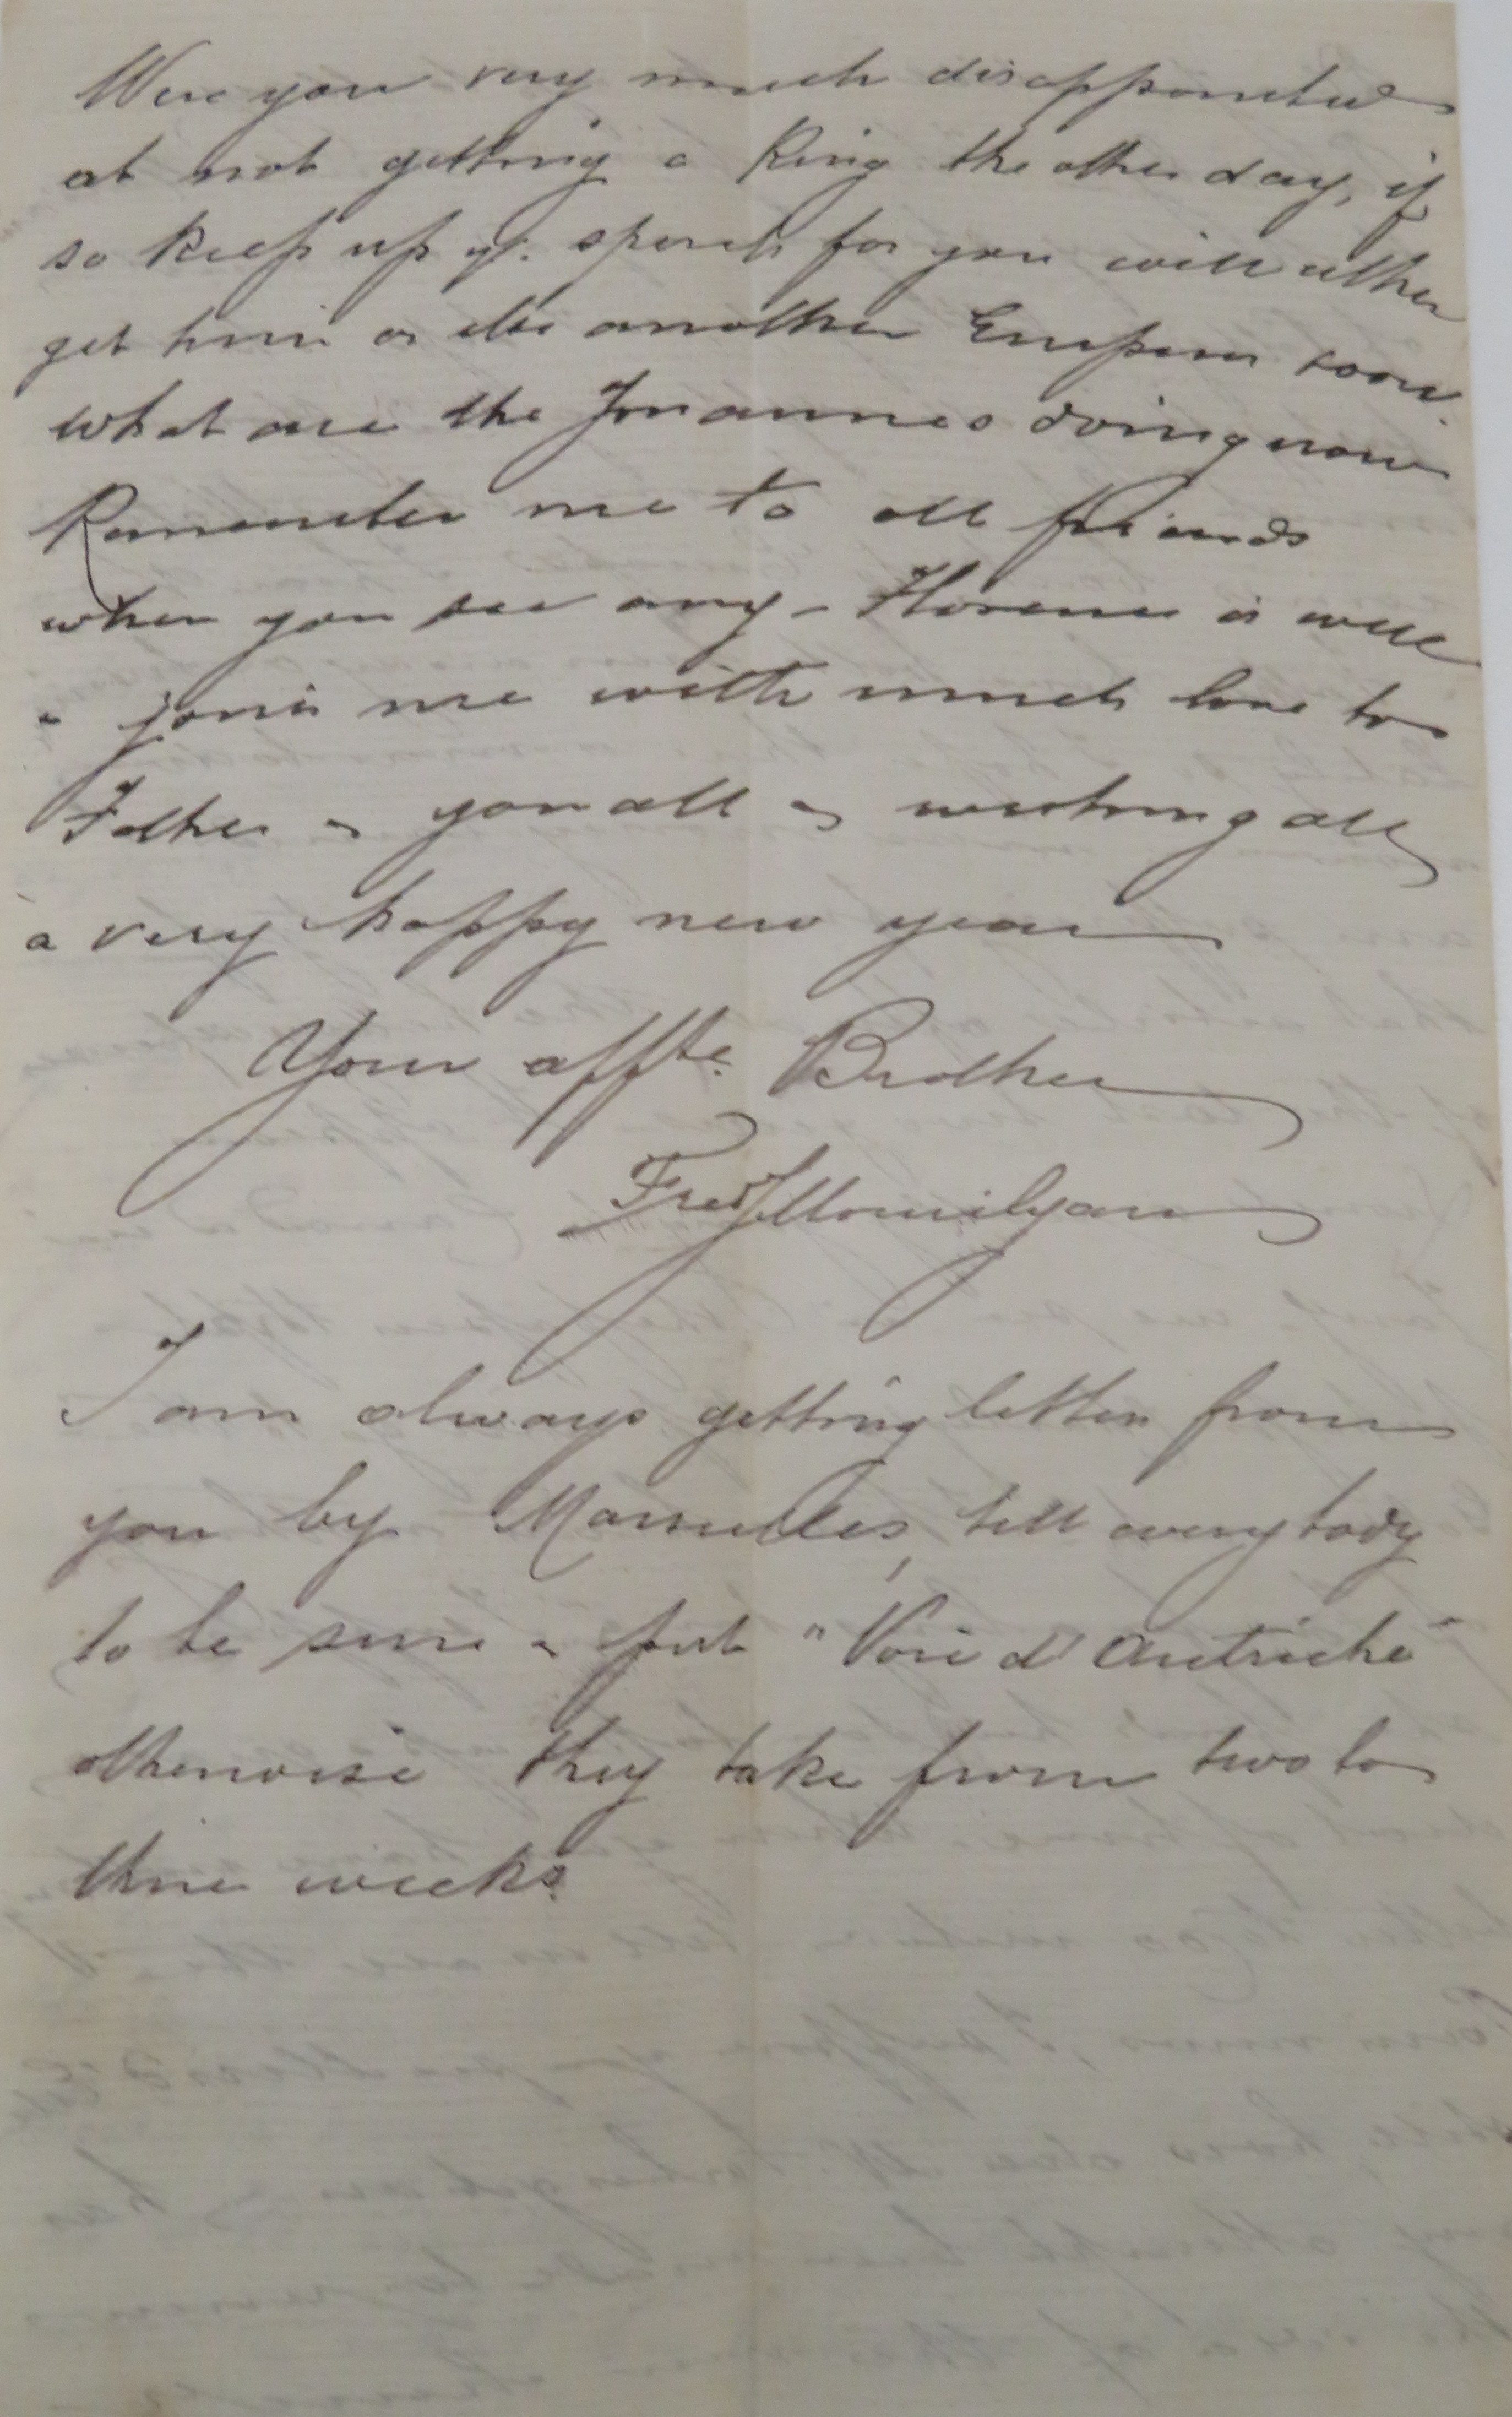 Were you very much disappointed
at not getting a King the other day, if
so keep up yr. spirits for you will either
get him or else another Emperor soon.
What are the doing now
Remember me to all friends
when you see any - Florence is well
& joins me with much love to
Father & you all & wishing all
a very happy new year
Your affte. Brother
Fred
I am always getting letters from
you by Marseilles, tell everybody
to be sure & put "Voie d'Autriche"
otherwise they take from two to
three weeks.